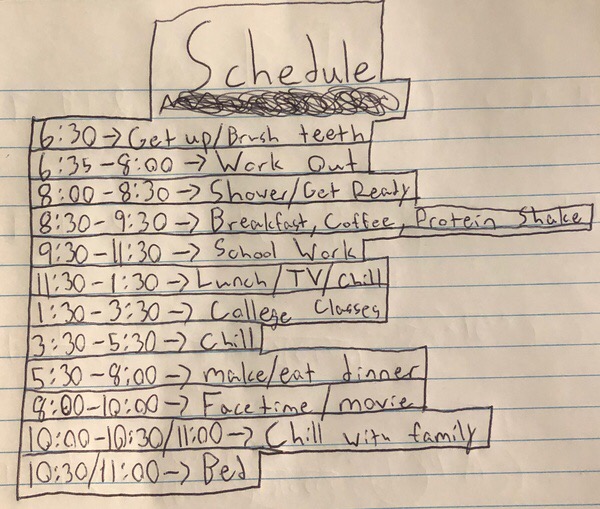 Schedule
6:30 → Get up/Brush teeth
6:35-8:00 → Work Out
8:00-8:30 → Shower/Get Ready
8:30-9:30 → Breakfast, Coffee, Protein Shake
9:30-11:30 → School Work
11:30-1:30 → Lunch/TV/Chill
1:30-3:30 → College Classes
3:30-5:30 → Chill
5:30-8:00 → make/eat dinner
8:00-10:00 → Facetime/movie
10:00-10:30/11:00 → Chill with family
10:30/11:00 → Bed